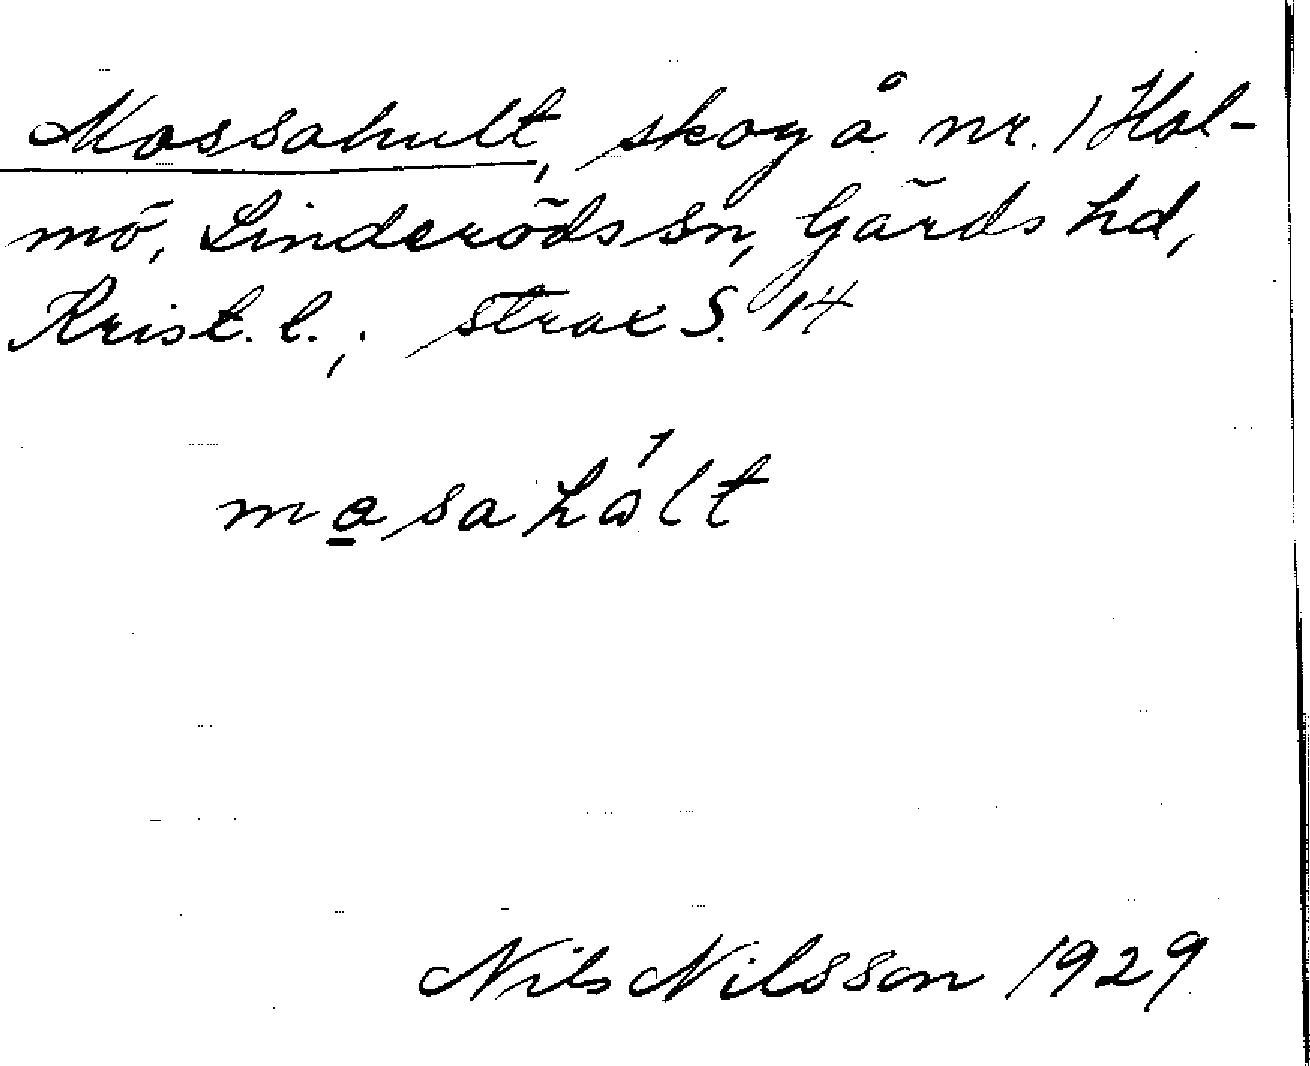 Mossahult, skog å nr. 1 Hol-
mö, Linderöds sn, Gärds hd,
Krist. l.; strax S. 14
mo̲sahåĺt
Nils Nilsson 1929